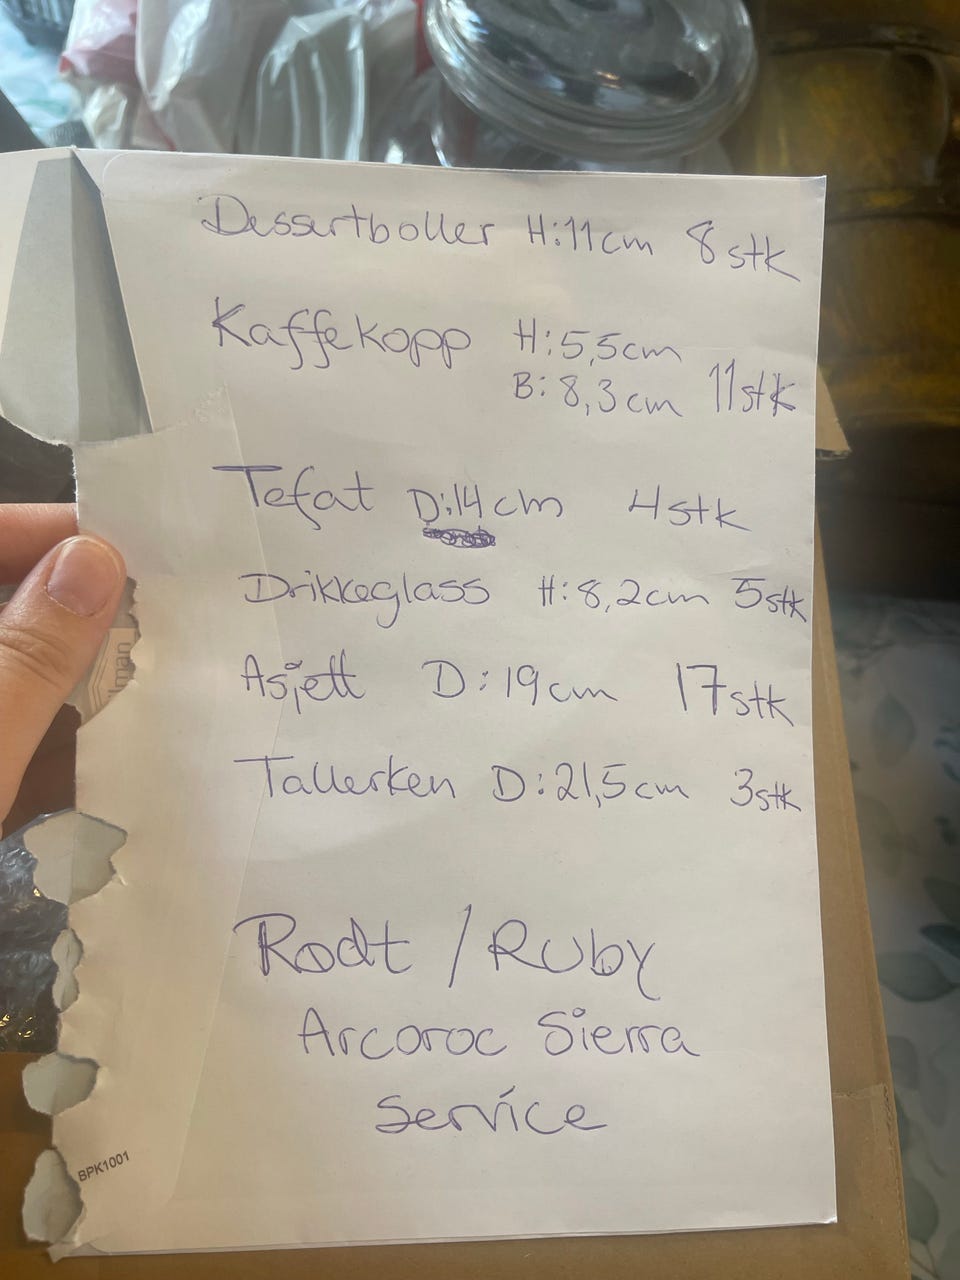 Dessertboller H:11cm 8stk
Kaffekopp H:5,5cm
B:8,3cm 11stk
Tefat D:14cm 4stk
Drikkeglass H:8,2cm 5stk
Asjett D:19cm 17stk
Tallerken D:21,5cm 3stk
Rødt / Ruby
Arcoroc Sierra
Service
BPK1001